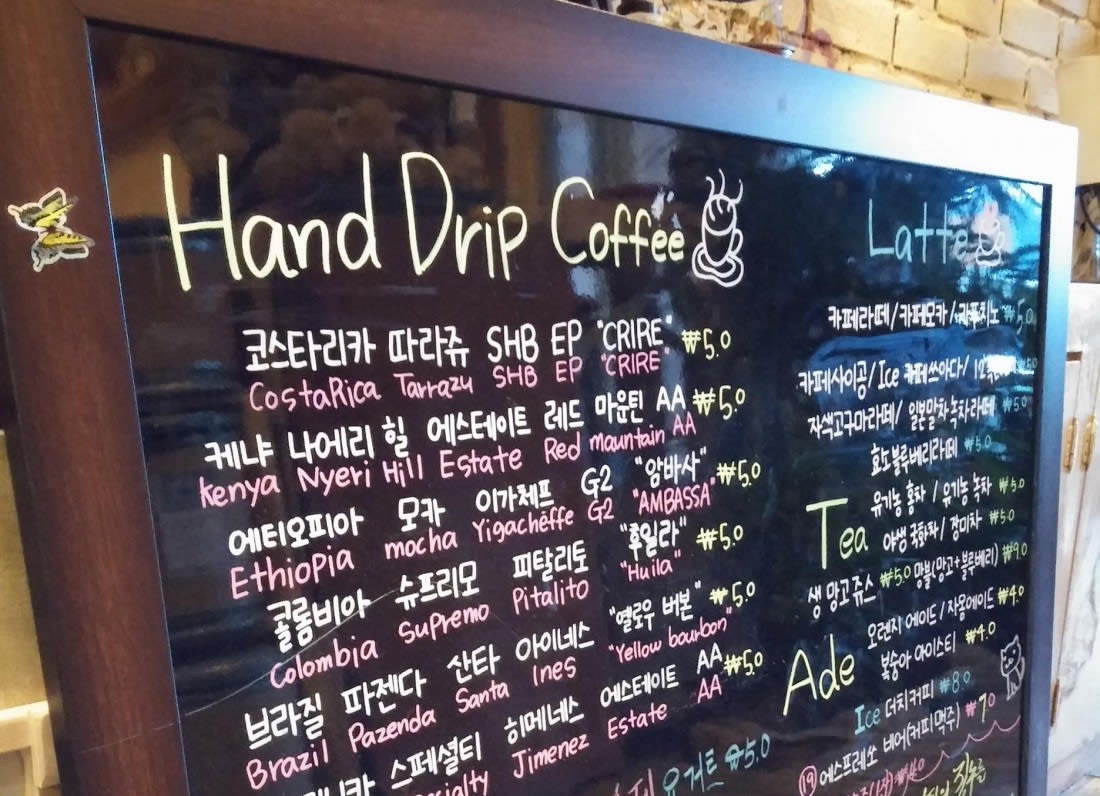 Hand Drip Coffee
코스타리카 따라쥬 SHB EP "CRIRE" ₩5.0
CostaRica Tarrazu SHB EP "CRIRE"
케냐 나에리 힐 에스테이트 레드 마운틴 AA ₩5.0
Kenya Nyeri Hill Estate Red mountain AA
에티오피아 모카 이가체프 G2 "암바사" ₩5.0
Ethiopia mocha Yigacheffe G2 "AMBASSA"
콜롬비아 슈프리모 피탈리토 "후일라" ₩5.0
Colombia Supremo Pitalito "Huila"
브라질 파젠다 산타 아이네스 "옐로우 버본" ₩5.0
Brazil Pazenda Santa Ines "Yellow bourbon"
스페셜티 히메네스 에스테이트 AA ₩5.0
Jimenez Estate AA
요거트 ₩5.0
Latte
카페라떼/카페모카/카푸치노 ₩5.0
카페사이공/Ice 카페쓰아다/
자색고구마라떼/ 일본말차녹차라떼 ₩5.0
효소블루베리라떼 ₩5.0
Tea
유기농 홍차 / 유기농 녹차 ₩5.0
야생 국화차/ 장미차 ₩5.0
생 망고 쥬스 ₩5.0 망블(망고+블루베리) ₩9.0
Ade
오렌지 에이드/자몽에이드 ₩4.0
복숭아 아이스티 ₩4.0
Ice 더치커피 ₩8.0
⑲ 에스프레소 비어(커피맥주) ₩7.0